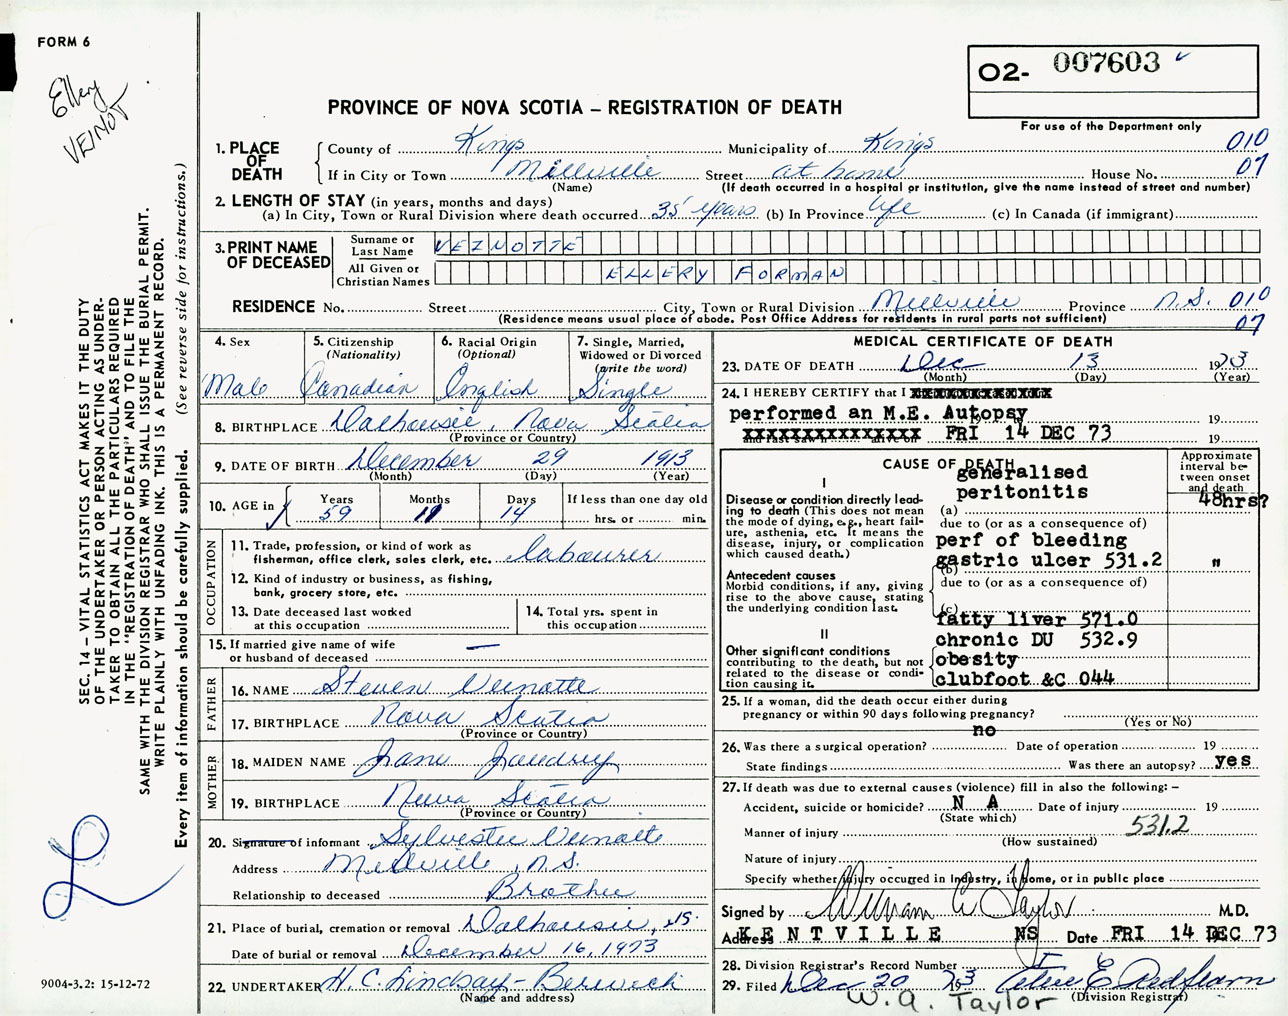 FORM 6
Ellery
VEINOT
O2- 007603
PROVINCE OF NOVA SCOTIA – REGISTRATION OF DEATH
For use of the Department only
1. PLACE OF DEATH
County of Kings Municipality of Kings 010
If in City or Town Millville Street at home House No. 07
(Name) (If death occurred in a hospital or institution, give the name instead of street and number)
2. LENGTH OF STAY (in years, months and days)
(a) In City, Town or Rural Division where death occurred 35 years (b) In Province life (c) In Canada (if immigrant)
3. PRINT NAME OF DECEASED
Surname or Last Name VEINOTTE
All Given or Christian Names ELLERY FORMAN
RESIDENCE No. Street City, Town or Rural Division Millville Province N.S. 010
(Residence means usual place of abode. Post Office Address for residents in rural parts not sufficient) 07
4. Sex Male
5. Citizenship (Nationality) Canadian
6. Racial Origin (Optional) English
7. Single, Married, Widowed or Divorced (write the word) Single
8. BIRTHPLACE Dalhousie, Nova Scotia
(Province or Country)
9. DATE OF BIRTH December 29 1913
(Month) (Day) (Year)
10. AGE in Years 59 Months 11 Days 14 If less than one day old hrs. or min.
OCCUPATION
11. Trade, profession, or kind of work as fisherman, office clerk, sales clerk, etc. labourer
12. Kind of industry or business, as fishing, bank, grocery store, etc.
13. Date deceased last worked at this occupation
14. Total yrs. spent in this occupation
15. If married give name of wife or husband of deceased —
FATHER
16. NAME Steven Veinotte
17. BIRTHPLACE Nova Scotia
(Province or Country)
MOTHER
18. MAIDEN NAME Jane
19. BIRTHPLACE Nova Scotia
(Province or Country)
20. Signature of informant Sylvester Veinotte
Address Millville, N.S.
Relationship to deceased Brother
21. Place of burial, cremation or removal Dalhousie, N.S.
Date of burial or removal December 16, 1973
22. UNDERTAKER H. C. Lindsay - Berwick
(Name and address)
MEDICAL CERTIFICATE OF DEATH
23. DATE OF DEATH Dec 13 1973
(Month) (Day) (Year)
24. I HEREBY CERTIFY that I XXXXXXXXXXXXX
performed an M.E. Autopsy 19
XXXXXXXXXXXXXX FRI 14 DEC 73 19
CAUSE OF DEATH
Approximate interval between onset and death
I
Disease or condition directly leading to death (This does not mean the mode of dying, e.g., heart failure, asthenia, etc. It means the disease, injury, or complication which caused death.)
generalised
peritonitis 48hrs?
(a)
due to (or as a consequence of)
perf of bleeding
gastric ulcer 531.2 "
(b)
Antecedent causes
Morbid conditions, if any, giving rise to the above cause, stating the underlying condition last.
due to (or as a consequence of)
(c)
II
Other significant conditions contributing to the death, but not related to the disease or condition causing it.
fatty liver 571.0
chronic DU 532.9
obesity
clubfoot &C 044
25. If a woman, did the death occur either during pregnancy or within 90 days following pregnancy?
(Yes or No)
26. Was there a surgical operation? no Date of operation 19
State findings Was there an autopsy? yes
27. If death was due to external causes (violence) fill in also the following: –
Accident, suicide or homicide? N A Date of injury 19
(State which)
Manner of injury 531.2
(How sustained)
Nature of injury
Specify whether injury occurred in Industry, in home, or in public place
Signed by William A Taylor M.D.
Address KENTVILLE NS Date FRI 14 DEC 73
28. Division Registrar's Record Number
29. Filed Dec 20 1973
(Division Registrar)
W. A. Taylor
SEC. 14 – VITAL STATISTICS ACT MAKES IT THE DUTY
OF THE UNDERTAKER OR PERSON ACTING AS UNDER-
TAKER TO OBTAIN ALL THE PARTICULARS REQUIRED
IN THE "REGISTRATION OF DEATH" AND TO FILE THE
SAME WITH THE DIVISION REGISTRAR WHO SHALL ISSUE THE BURIAL PERMIT.
WRITE PLAINLY WITH UNFADING INK. THIS IS A PERMANENT RECORD.
Every item of information should be carefully supplied. (See reverse side for instructions.)
9004-3.2: 15-12-72